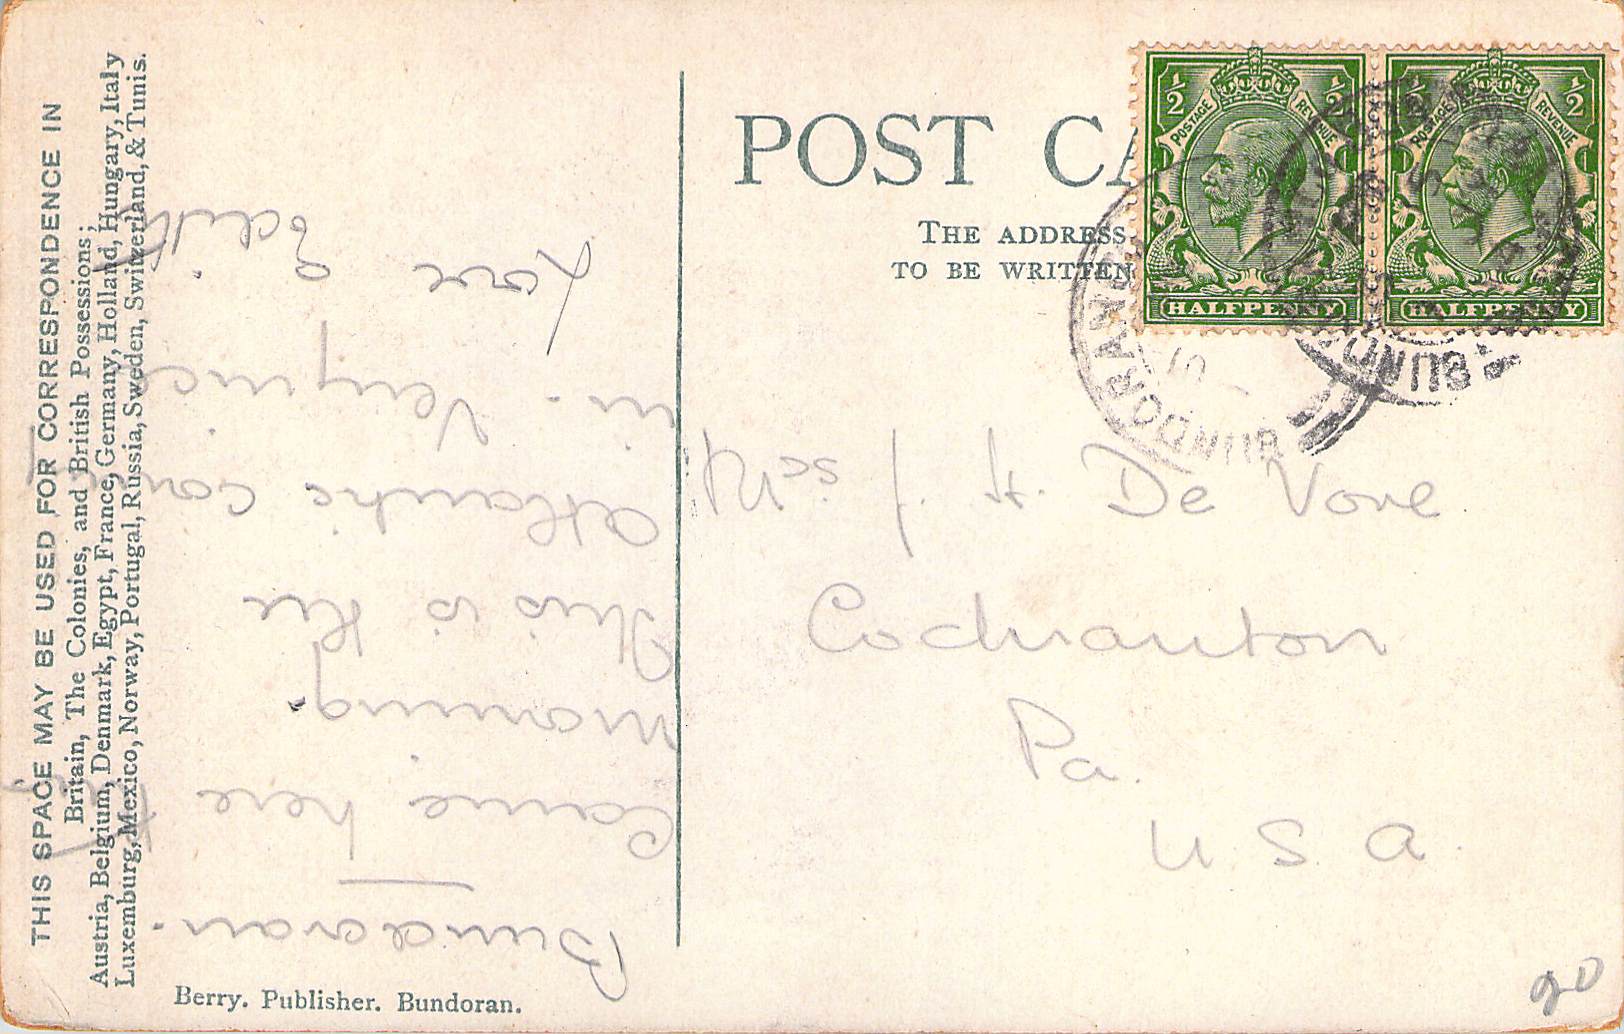 THIS SPACE MAY BE USED FOR CORRESPONDENCE IN
Britain, The Colonies, and British Possessions;
Austria, Belgium, Denmark, Egypt, France, Germany, Holland, Hungary, Italy
Luxemburg, Mexico, Norway, Portugal, Russia, Sweden, Switzerland, & Tunis.
Bundoran.
Came here this
morning.
This is the
Atlantic
in. Very nice
Love Edith
Berry. Publisher. Bundoran.
POST CA
THE ADDRESS
TO BE WRITTEN
½ ½
POSTAGE REVENUE
HALFPENNY
½ ½
POSTAGE REVENUE
HALFPENNY
BUNDORAN
BUNDO
J. H. De Vore
Cochranton
Pa.
U. S. A.
20